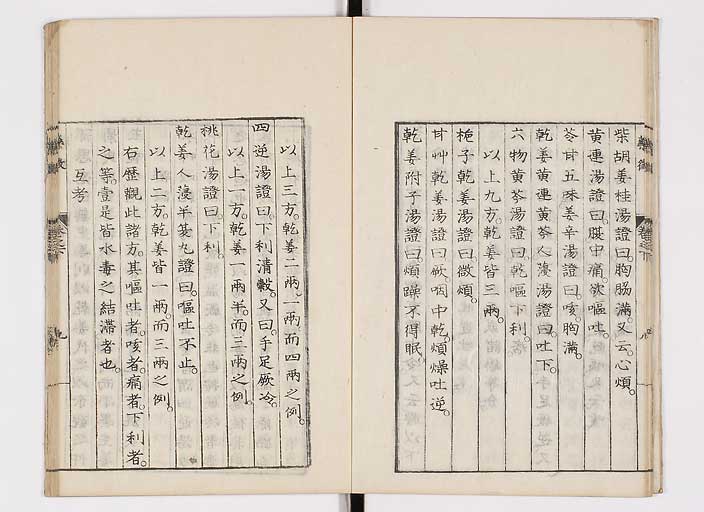 柴胡姜桂湯證曰。胸脇滿。又云。心煩。
黄連湯證曰。腹中痛。欲嘔吐。
苓甘五味姜辛湯證曰。咳。胸滿。
乾姜黄連黄芩人湯證曰。吐下。
六物黄芩湯證曰。乾嘔下利。
以上九方。乾姜皆三兩。
梔子乾姜湯證曰。微煩。
甘艸乾姜湯證曰。厥。咽中乾。煩燥。吐逆。
乾姜附子湯證曰。煩躁不得眠。
以上三方。乾姜二兩。一兩而四兩之例。
四逆湯證曰。下利清穀。又曰。手足厥冷。
以上一方。乾姜一兩半。而三兩之例。
桃花湯證曰。下利。
乾姜人半夏丸證曰。嘔吐不止。
以上二方。乾姜皆一兩。而三兩之例。
右歷觀此諸方。其嘔吐者。咳者。痛者。下利者。
之等。壹是皆水毒之結滯者也。
互考
九